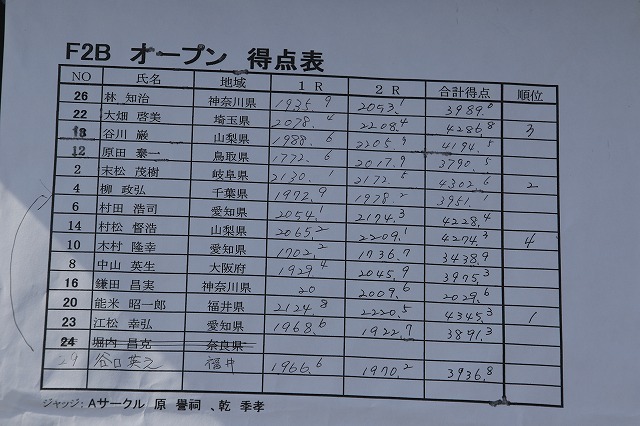 F2B オープン 得点表
NO 氏名 地域 1 R 2 R 合計得点 順位
26 林 知治 神奈川県 1935.9 2053.1 3989.0
22 大畑 啓美 埼玉県 2078.4 2208.4 4286.8 3
18 谷川 巌 山梨県 1988.6 2205.9 4194.5
12 原田 泰一 鳥取県 1772.6 2017.9 3790.5
2 末松 茂樹 岐阜県 2130.1 2172.5 4302.6 2
4 柳 政弘 千葉県 1972.9 1978.2 3951.1
6 村田 浩司 愛知県 2054.1 2174.3 4228.4
14 村松 督浩 山梨県 2065.2 2209.1 4274.3 4
10 木村 隆幸 愛知県 1702.2 1736.7 3438.9
8 中山 英生 大阪府 1929.4 2045.9 3975.3
16 鎌田 昌実 神奈川県 20 2009.6 2029.6
20 能米 昭一郎 福井県 2124.8 2220.5 4345.3 1
23 江松 幸弘 愛知県 1968.6 1922.7 3891.3
24 堀内 昌克 奈良県
29 谷口英之 福井 1966.6 1970.2 3936.8
ジャッジ：Aサークル 原 誉祠 、乾 季孝